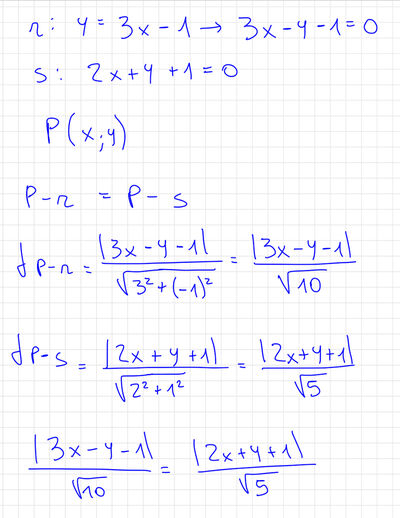 r: y = 3x - 1 → 3x - y - 1 = 0
s: 2x + y + 1 = 0
P(x; y)
P - r = P - s
d P-r = |3x - y - 1| / √(3² + (-1)²) = |3x - y - 1| / √10
d P-s = |2x + y + 1| / √(2² + 1²) = |2x + y + 1| / √5
|3x - y - 1| / √10 = |2x + y + 1| / √5